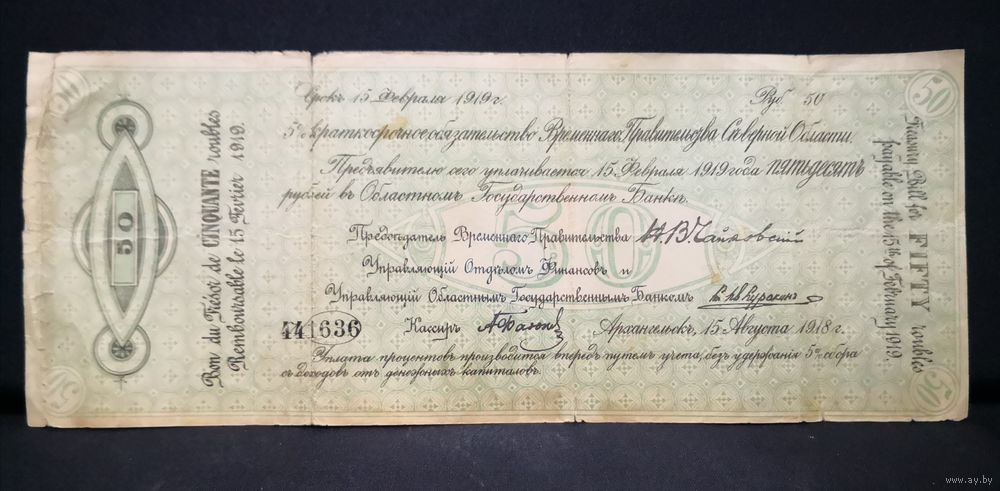 50
Bon du Trésor de CINQUANTE roubles
Remboursable le 15 Fevrier 1919.
Срокъ 15 Февраля 1919 г. Руб. 50
5% краткосрочное обязательство Временнаго Правительства Сѣверной Области.
Предъявителю сего уплачивается 15 Февраля 1919 года пятьдесятъ
рублей въ Областномъ Государственномъ Банкѣ.
50
Предсѣдатель Временнаго Правительства Н.В. Чайковский
Управляющій Отдѣломъ Финансовъ и
Управляющій Областнымъ Государственнымъ Банкомъ Куракинъ
441636 Кассиръ Архангельскъ, 15 Августа 1918 г.
Уплата процентовъ производится впередъ путемъ учета, безъ удержанія 5% сбора
съ доходовъ отъ денежныхъ капиталовъ.
Treasury Bill for FIFTY roubles
payable on the 15th of February 1919.
50
50
50
50
www.ay.by